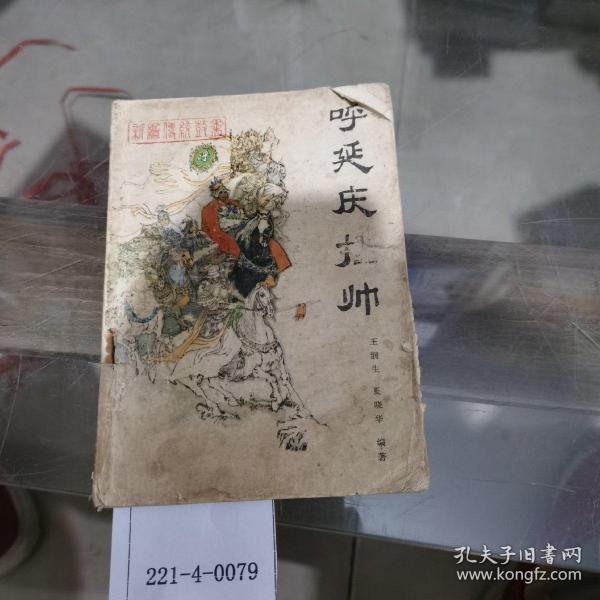 新编傳統鼓書
呼延庆挂帅
王润生 甄晓华 编著
221-4-0079
孔夫子旧书网
www.kongfz.com